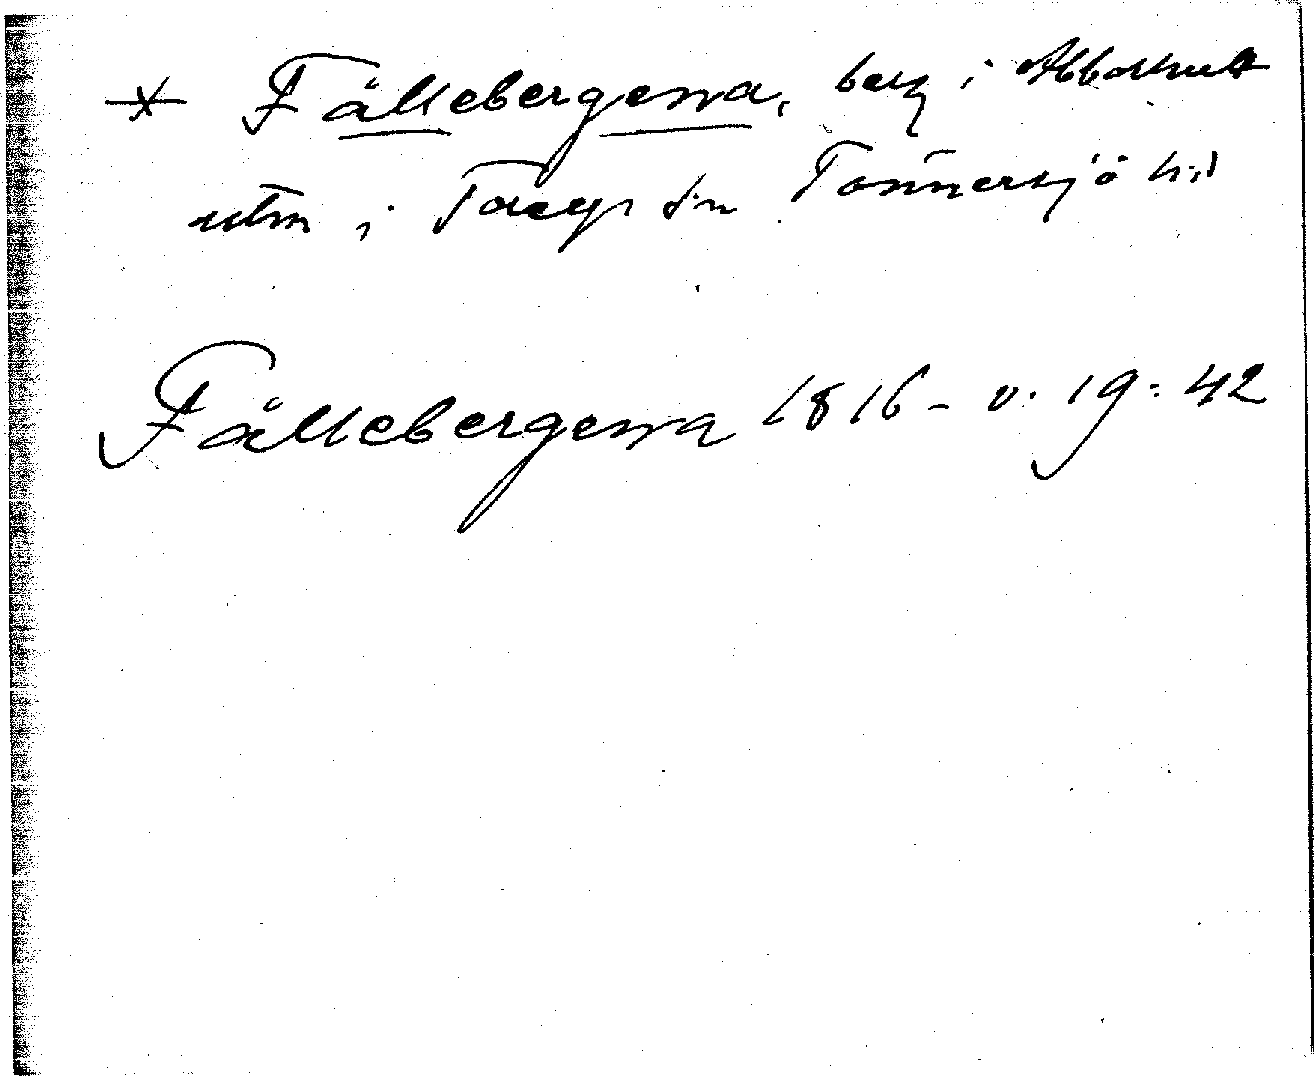 * Fällebergena, berg i Abborhult
utm i Torup sn Tönnersjö hd
Fållebergena 1816 - v. 19: 42